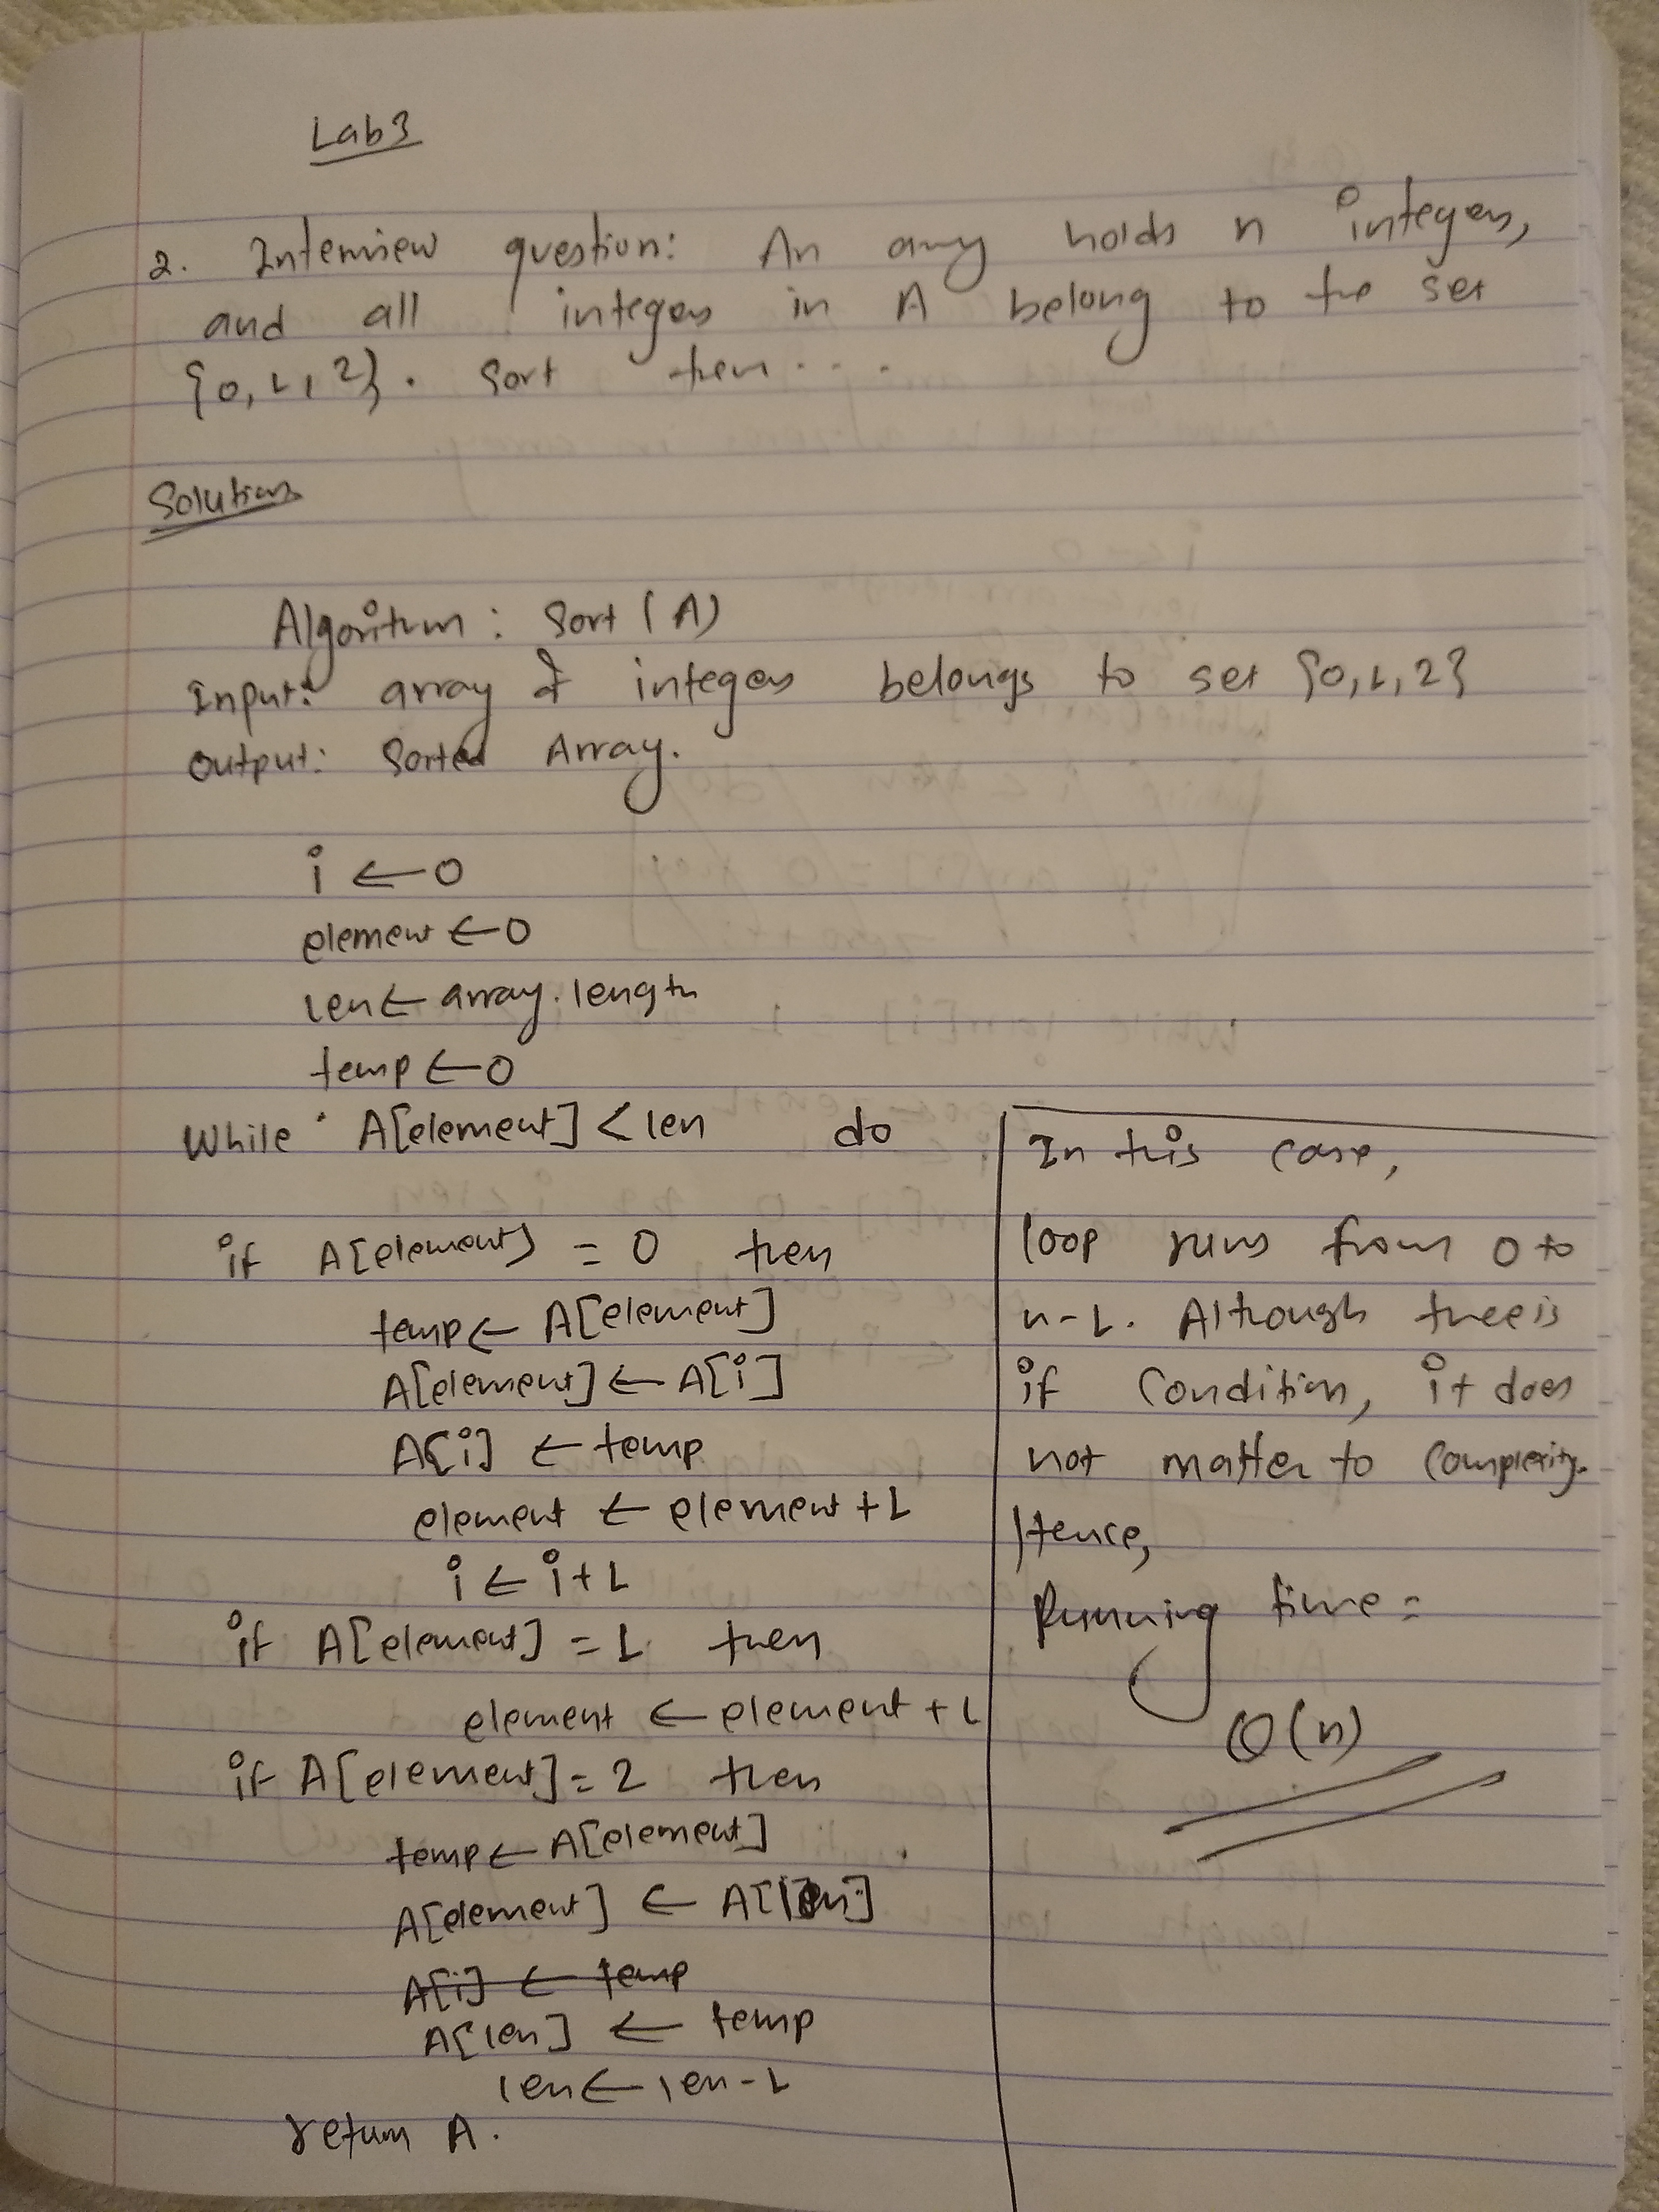 Lab3
2. Interview question: An array holds n integers,
and all integers in A belong to the set
{0, 1, 2}. Sort them...
Solution
Algorithm: Sort (A)
Input: array of integers belongs to set {0,1,2}
Output: Sorted Array.
i ← 0
element ← 0
len ← array.length
temp ← 0
While A[element] < len do
if A[element] = 0 then
temp ← A[element]
A[element] ← A[i]
A[i] ← temp
element ← element + 1
i ← i+1
if A[element] = 1 then
element ← element + 1
if A[element] = 2 then
temp ← A[element]
A[element] ← A[len]
A[i] ← temp
A[len] ← temp
len ← len-1
return A.
In this case,
loop runs from 0 to
n-1. Although there is
if condition, it does
not matter to complexity.
Hence,
Running time =
O(n)